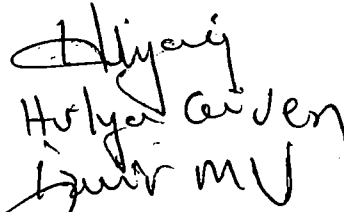 Hülya Güven
İzmir MV